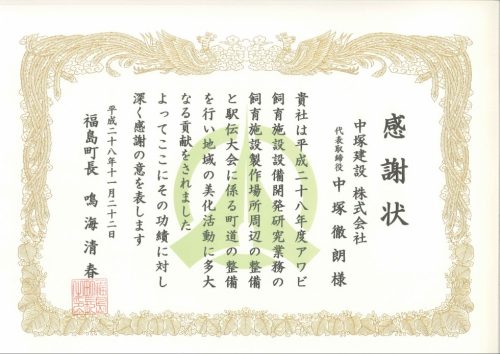 感謝状
中塚建設 株式会社
代表取締役 中塚徹朗 様
貴社は平成二十八年度アワビ
飼育施設設備開発研究業務の
飼育施設製作場所周辺の整備
と駅伝大会に係る町道の整備
を行い地域の美化活動に多大
なる貢献をされました
よってここにその功績に対し
深く感謝の意を表します
平成二十八年十一月二十二日
福島町長 鳴海清春